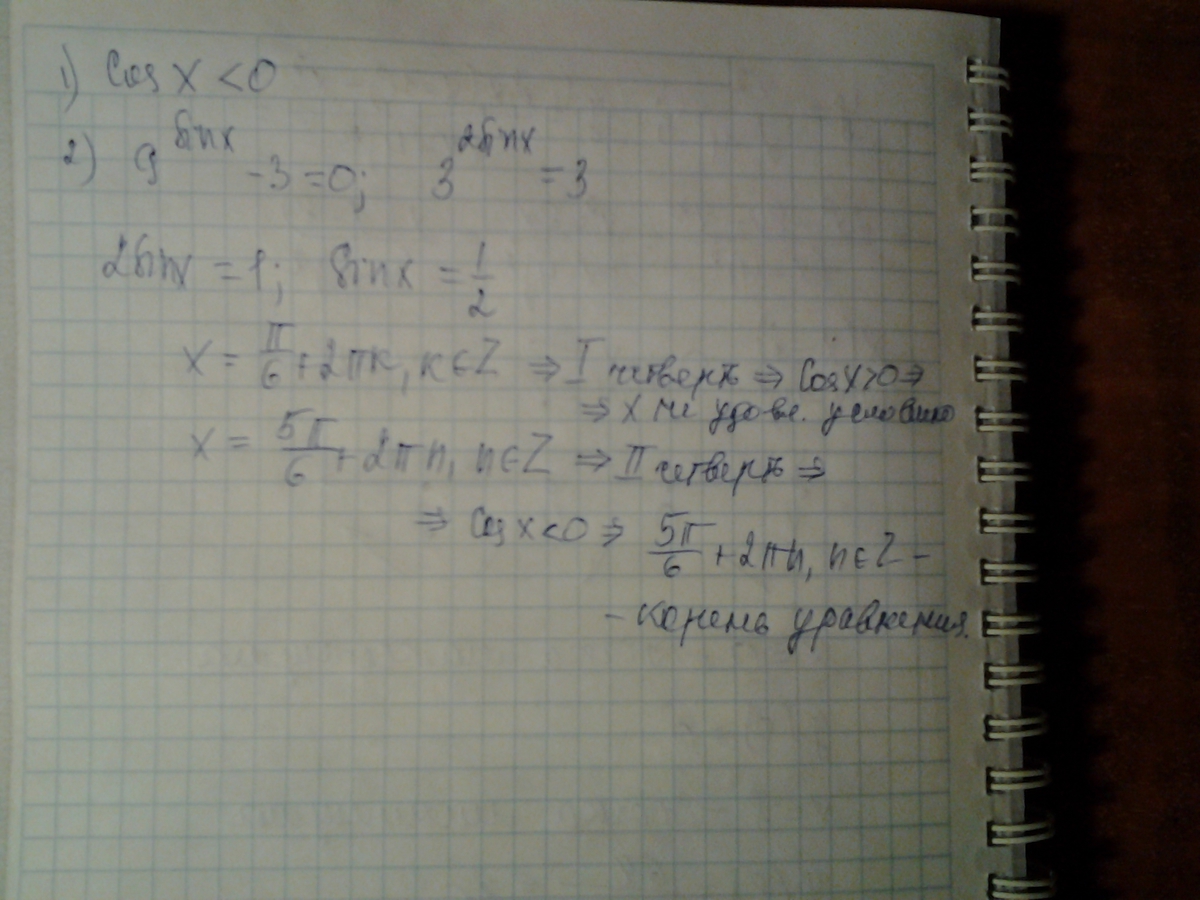 1) Cos x < 0
2) 9^sinx - 3 = 0; 3^2sinx = 3
2sinx = 1; sinx = 1/2
x = π/6 + 2πk, k∈Z ⇒ I четверть ⇒ Cosx>0 ⇒
⇒ x не удовл. условию
x = 5π/6 + 2πn, n∈Z ⇒ II четверть ⇒
⇒ Cos x<0 ⇒ 5π/6 + 2πn, n∈Z –
– корень уравнения.